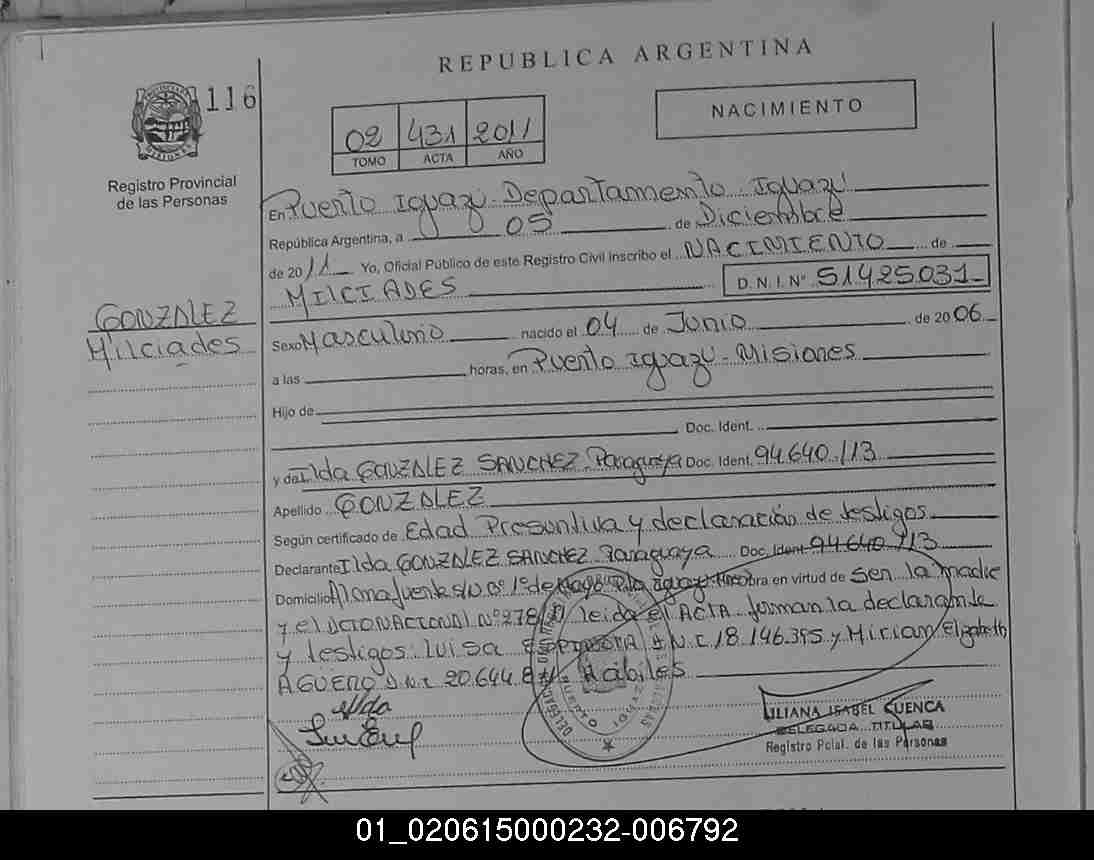 REPUBLICA ARGENTINA
116
NACIMIENTO
02 431 2011
TOMO ACTA AÑO
Registro Provincial
de las Personas
En Puerto Iguazú - Departamento Iguazú
República Argentina, a 05 de Diciembre
de 2011 Yo, Oficial Público de este Registro Civil inscribo el NACIMIENTO de
MILCIADES D.N.I. Nº 51.425.031
GONZALEZ
Milciades
Sexo Masculino nacido el 04 de Junio de 2006
a las horas, en Puerto Iguazú - Misiones
Hijo de
Doc. Ident.
y de Ilda GONZALEZ SANCHEZ Paraguaya Doc. Ident. 94.640.113
Apellido GONZALEZ
Según certificado de Edad Presuntiva y declaración de testigos
Declarante Ilda GONZALEZ SANCHEZ Paraguaya Doc. Ident 94.640.113
Domicilio s/c Bº 1º de Mayo Pto Iguazú obra en virtud de Ser la madre
y el Nº 278 leida el ACTA firman la declarante
y testigos: Luisa D.N.I. 18.146.395 y Mirian Elizabeth
AGUERO D.N.I. 20.644. Habiles
Ilda
LILIANA ISABEL CUENCA
DELEGADA TITULAR
Registro Pcial. de las Personas
01_020615000232-006792